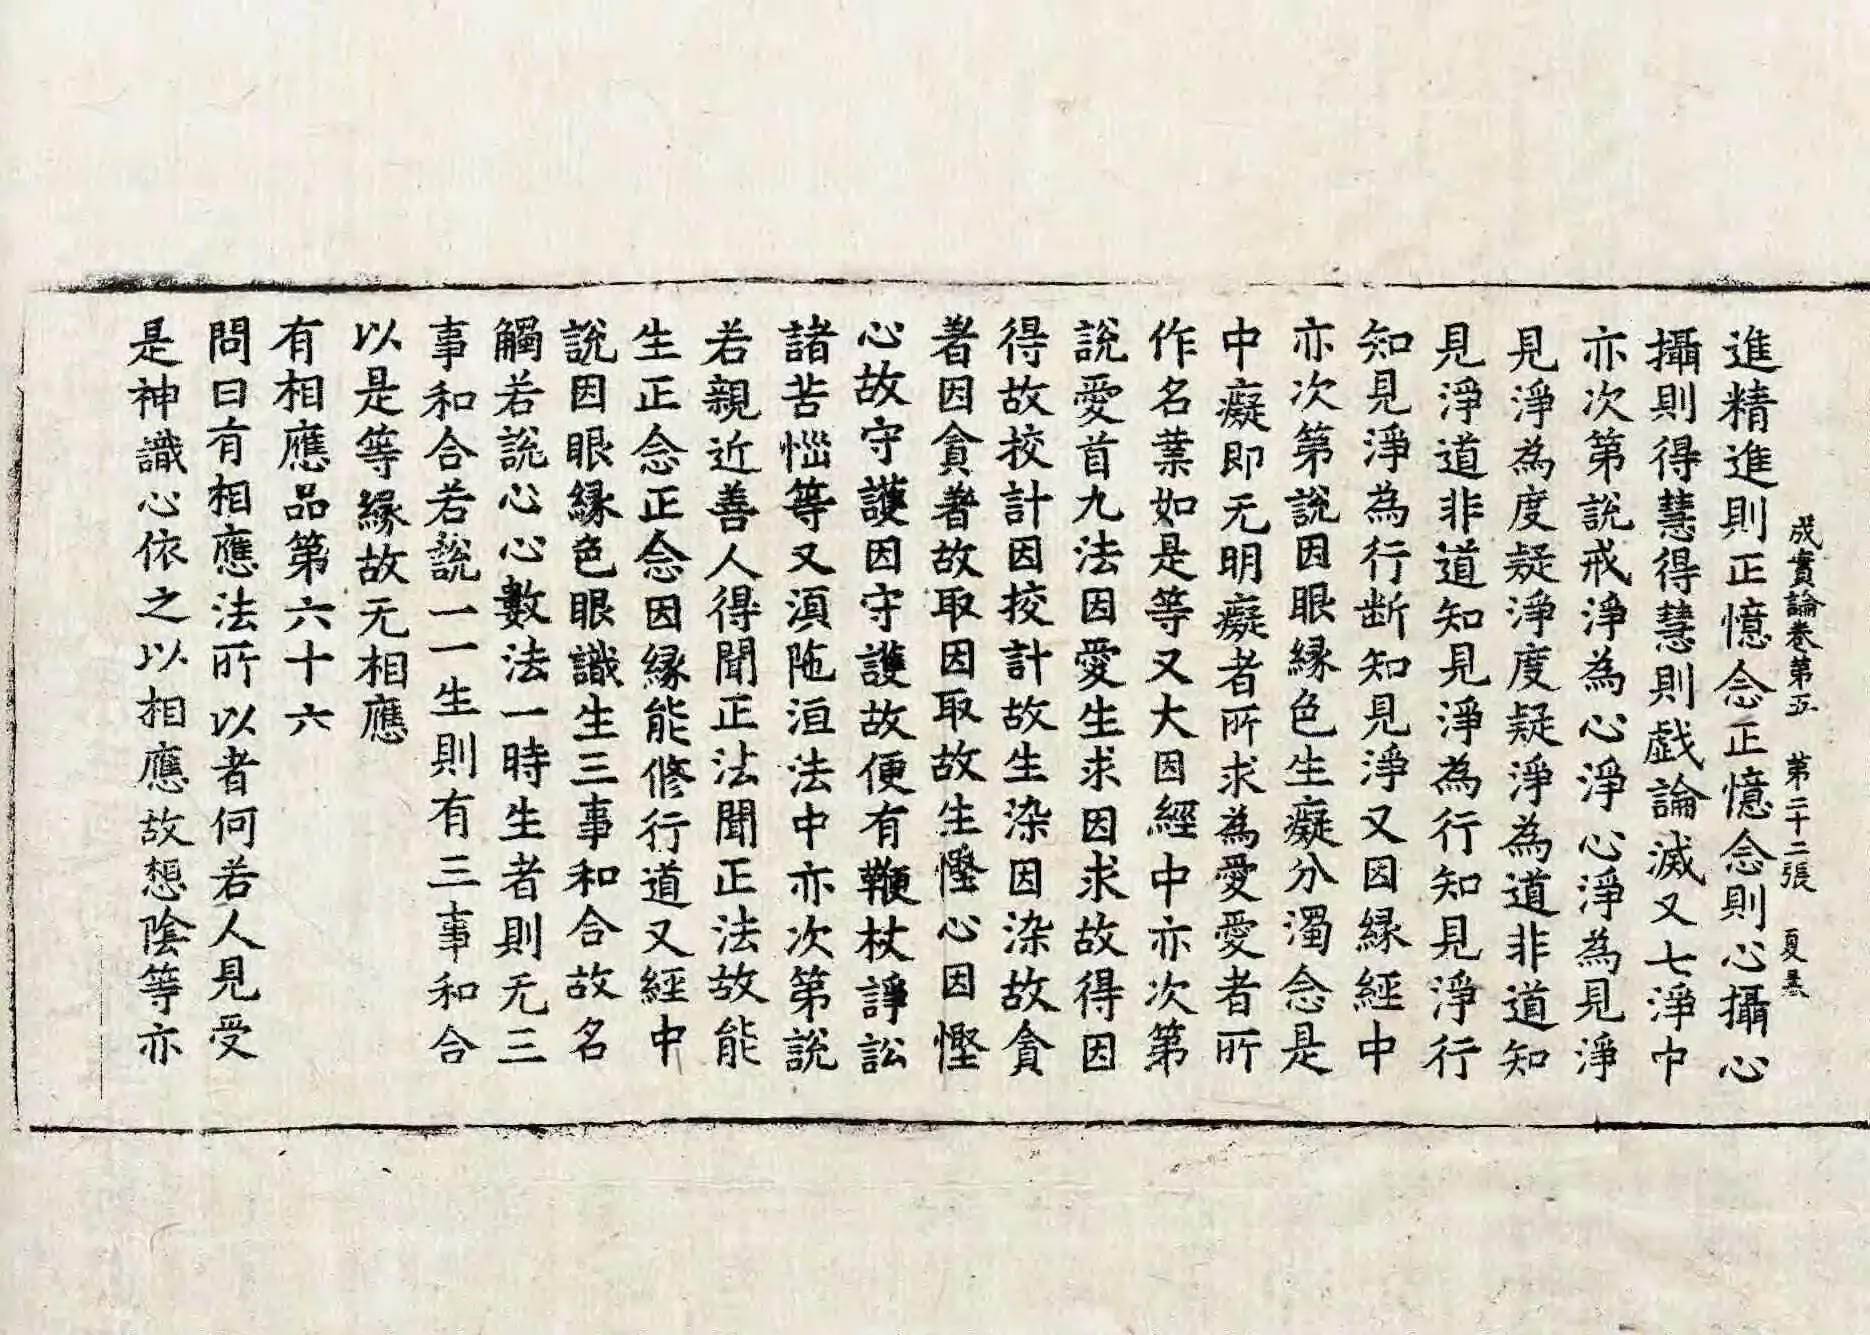 成實論卷第五 第二十二張 夏
進精進則正憶念正憶念則心攝心
攝則得慧得慧則戱論滅又七淨中
亦次第說戒淨為心淨心淨為見淨
見淨為度疑淨度疑淨為道非道知
見淨道非道知見淨為行知見淨行
知見淨為行断知見淨又因縁經中
亦次第說因眼縁色生癡分濁念是
中癡即无明癡者所求為愛愛者所
作名業如是等又大因經中亦次第
說愛首九法因愛生求因求故得因
得故挍計因挍計故生染因染故貪
著因貪著故取因取故生慳心因慳
心故守護因守護故便有鞭杖諍訟
諸苦惱等又湏陁洹法中亦次第說
若親近善人得聞正法聞正法故能
生正念正念因縁能修行道又經中
說因眼縁色眼識生三事和合故名
觸若說心心數法一時生者則无三
事和合若說一一生則有三事和合
以是等縁故无相應
有相應品第六十六
問曰有相應法所以者何若人見受
是神識心依之以相應故想陰等亦